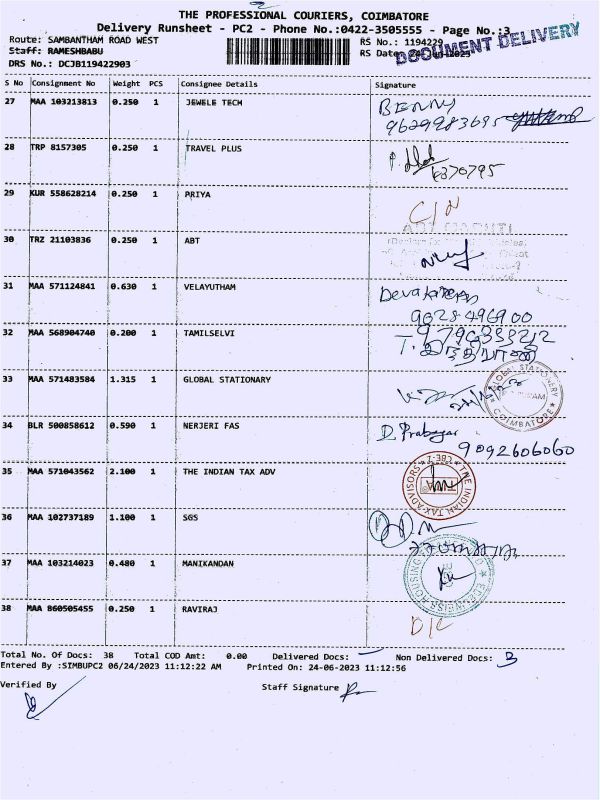 THE PROFESSIONAL COURIERS, COIMBATORE
Delivery Runsheet - PC2 - Phone No.:0422-3505555 - Page No.:3
DOCUMENT DELIVERY
Route: SAMBANTHAM ROAD WEST
RS No.: 1194229
Staff: RAMESHBABU
RS Date: 24 Jun 2023
DRS No.: DCJB119422903
S No Consignment No Weight PCS Consignee Details Signature
27 MAA 103213813 0.250 1 JEWELE TECH BENNY
9629983695
28 TRP 8157305 0.250 1 TRAVEL PLUS
6370795
29 KUR 558628214 0.250 1 PRIYA C/N
30 TRZ 21103836 0.250 1 ABT
31 MAA 571124841 0.630 1 VELAYUTHAM
9028496900
32 MAA 568904740 0.200 1 TAMILSELVI
33 MAA 571483584 1.315 1 GLOBAL STATIONARY
GLOBAL STATIONERY COIMBATORE
34 BLR 500858612 0.590 1 NERJERI FAS D. Prabagar
9092606060
35 MAA 571043562 2.100 1 THE INDIAN TAX ADV
THE INDIAN TAX ADVISORS CBE-2
36 MAA 102737189 1.100 1 SGS
37 MAA 103214023 0.480 1 MANIKANDAN
EDELWEISS HOUSING
38 MAA 860505455 0.250 1 RAVIRAJ D/L
Total No. Of Docs: 38 Total COD Amt: 0.00 Delivered Docs: Non Delivered Docs: 3
Entered By :SIMBUPC2 06/24/2023 11:12:22 AM Printed On: 24-06-2023 11:12:56
Verified By
Staff Signature